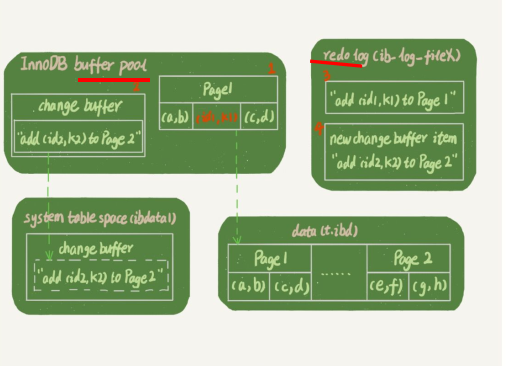 InnoDB buffer pool
2
change buffer
"add (id2,k2) to Page 2"
1
Page1
(a,b) (id1,k1) (c,d)
redo log (ib-log-fileX)
3
"add (id1,k1) to Page 1"
4
new change buffer item
"add (id2,k2) to Page 2"
system table space (ibdata1)
change buffer
"add (id2,k2) to Page 2"
data (t.ibd)
Page 1 ...... Page 2
(a,b) (c,d) (e,f) (g,h)